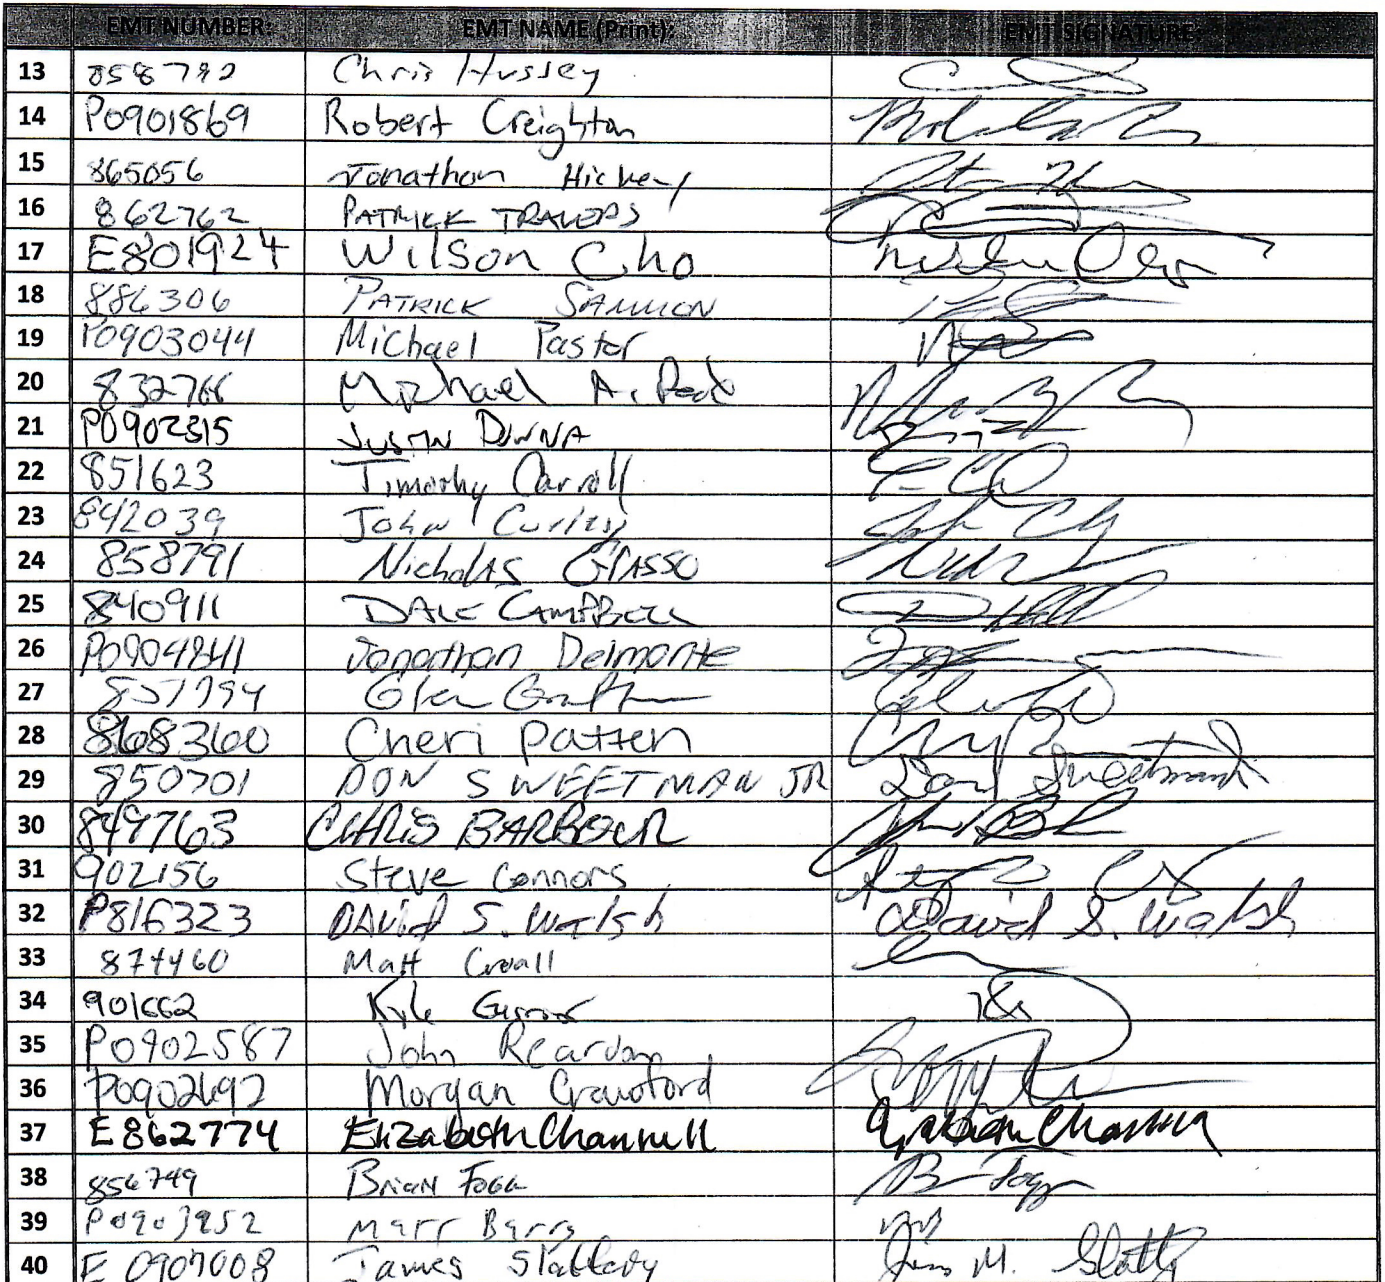 EMT NUMBER: EMT NAME (Print): EMT SIGNATURE:
13 858792 Chris Hussey
14 P0901869 Robert Creighton
15 865056 Jonathan Hickey
16 862762 PATRICK TRAVERS
17 E801924 Wilson Cho
18 886306 PATRICK SAMMON
19 P0903044 Michael Pastor
20 832766 Michael A.
21 P0902315 JUSTIN
22 851623 Timothy Carroll
23 842039 John Curley
24 858791 Nicholas GRASSO
25 840911 DALE CAMPBELL
26 P0904841 Jonathan Delmonte
27 Glen
28 868360 Cheri Patten
29 850701 DON SWEETMAN JR
30 849763 CHRIS BARBOUR
31 902156 Steve Connors
32 P816323 DAVID S. Walsh David S. Walsh
33 874460 Matt
34 901662 Kyle
35 P0902587 John Reardon
36 P0902692 Morgan Crawford
37 E862774 Elizabeth Channell Elizabeth Channell
38 856749 BRIAN FOGG B Fogg
39 Matt Barry
40 E 0907008 James Slattery Jim M. Slattery